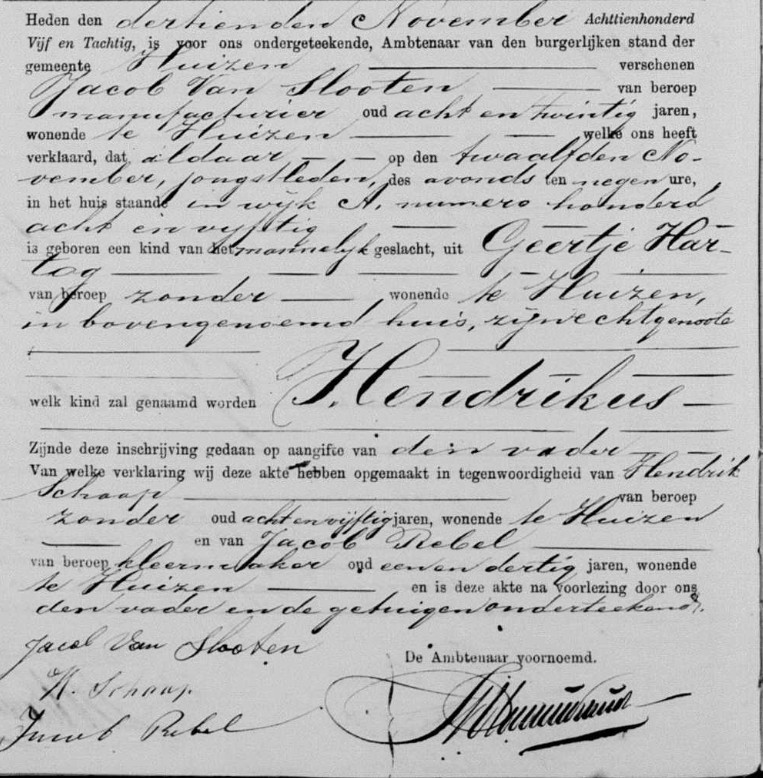 Heden den dertienden November Achttienhonderd
Vijf en Tachtig, is voor ons ondergeteekende, Ambtenaar van den burgerlijken stand der
gemeente Huizen verschenen
Jacob Van Slooten van beroep
manufacturier oud acht en twintig jaren,
wonende te Huizen welke ons heeft
verklaard, dat aldaar op den twaalfden No-
vember, jongstleden, des avonds ten negen ure,
in het huis staande in wijk A. numero honderd
acht en vijftig
is geboren een kind van het mannelijk geslacht, uit Geertje Har-
tog
van beroep zonder wonende te Huizen,
in bovengenoemd huis, zijne echtgenoote
welk kind zal genaamd worden Hendrikus
Zijnde deze inschrijving gedaan op aangifte van den vader
Van welke verklaring wij deze akte hebben opgemaakt in tegenwoordigheid van Hendrik
Schaap van beroep
zonder oud acht en vijftig jaren, wonende te Huizen
en van Jacob Rebel
van beroep kleermaker oud een en dertig jaren, wonende
te Huizen en is deze akte na voorlezing door ons
den vader en de getuigen onderteekend.
Jacob Van Slooten
De Ambtenaar voornoemd.
H. Schaap.
Jacob Rebel